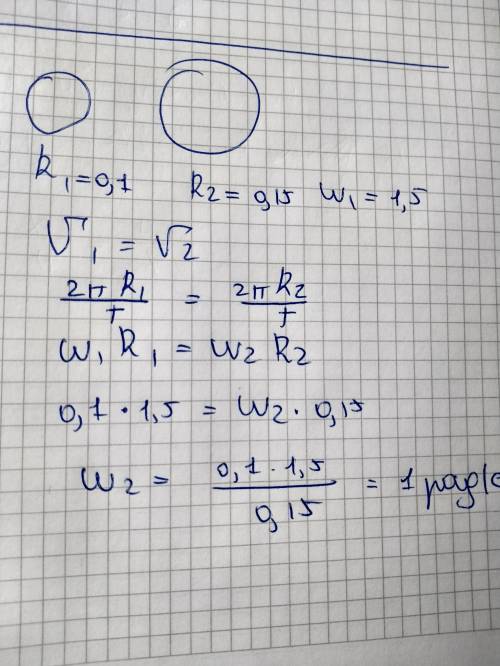 R₁ = 0,1 R₂ = 0,15 ω₁ = 1,5
V₁ = V₂
2π R₁ / T = 2π R₂ / T
ω₁ R₁ = ω₂ R₂
0,1 · 1,5 = ω₂ · 0,15
ω₂ = 0,1 · 1,5 / 0,15 = 1 рад/с